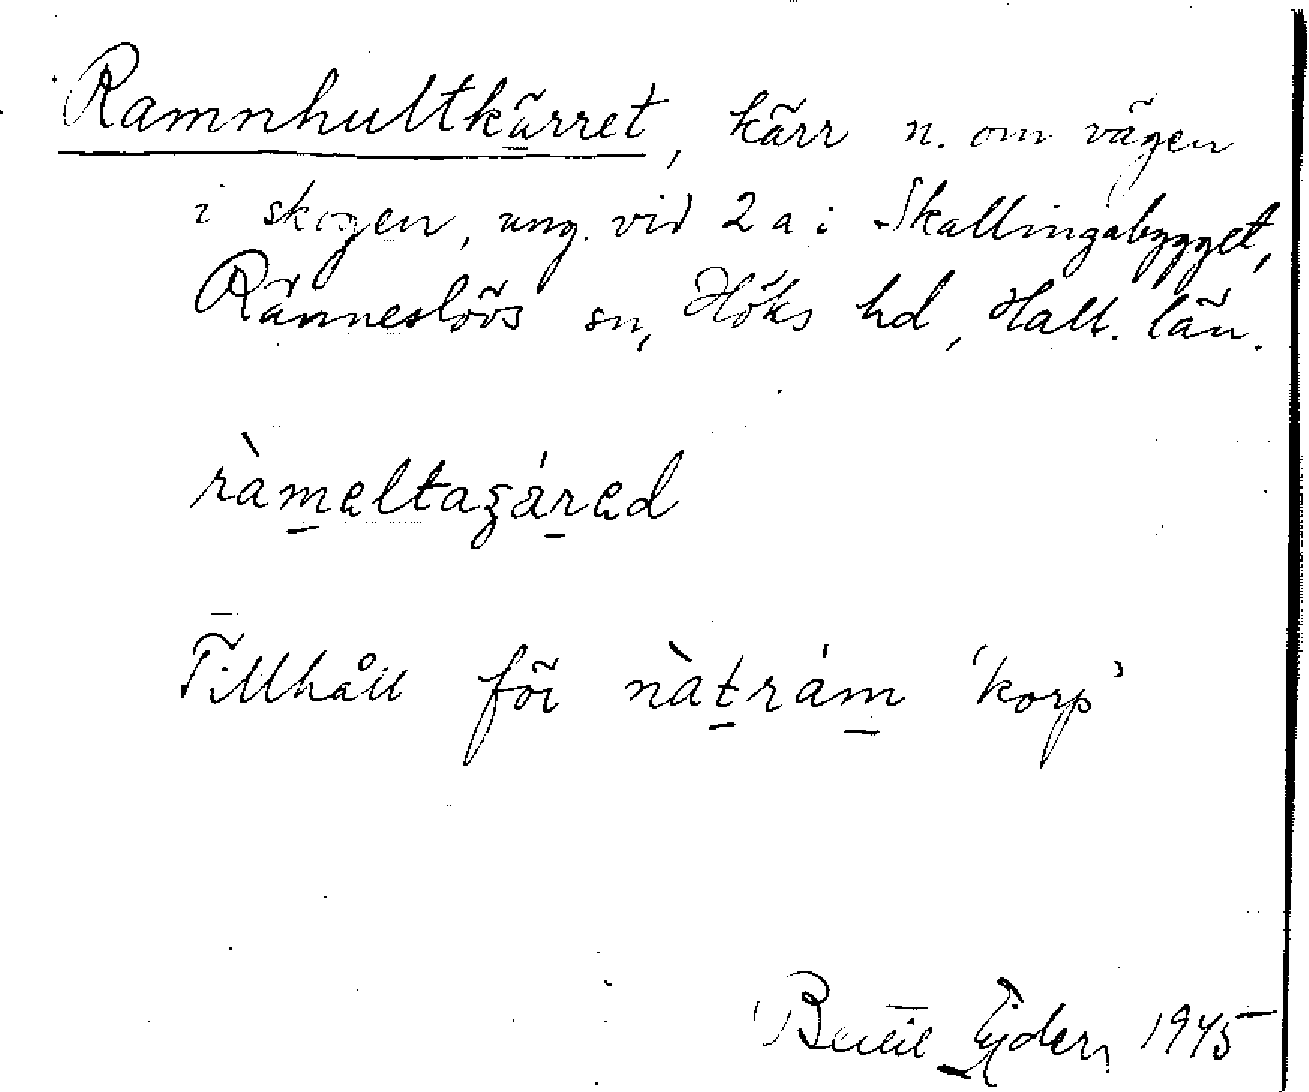 Ramnhultkärret, kärr n. om vägen
i skogen, ung. vid 2a i Skallingabygget,
Ränneslövs sn, Höks hd, Hall. län.
ràmeltaʒáred
Tillhåll för nàtrám 'korp'
Bertil Ejder, 1945